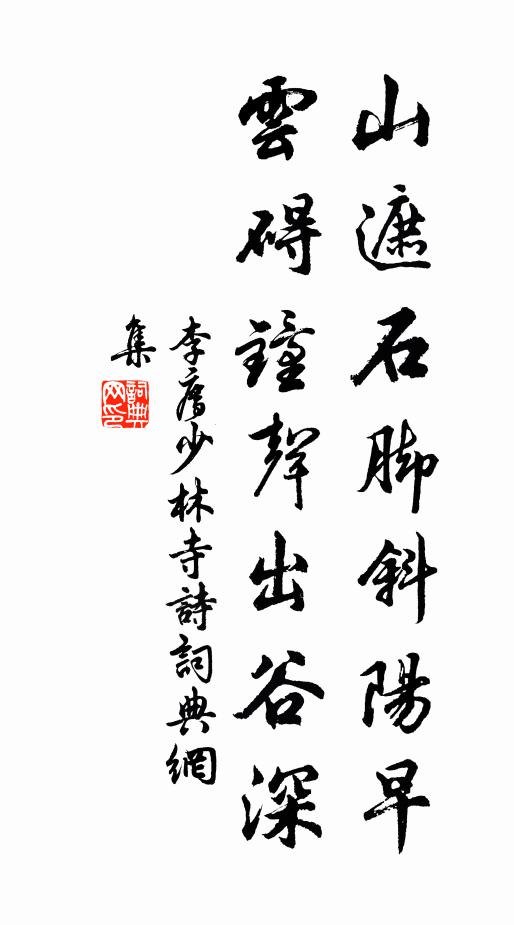 山遮石脚斜陽早
雲碍鐘聲出谷深
李廌少林寺詩詞典網
集
詞典
网印